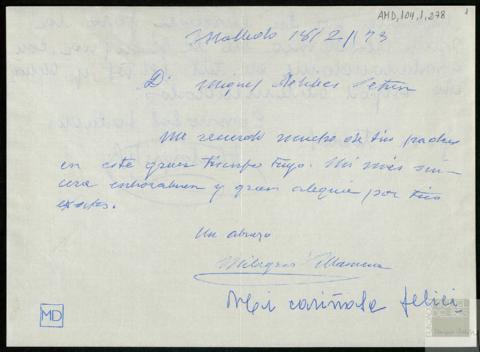 AMD,104,1,278
18/2/73
D. Miguel Delibes Setien
Me recuerdo mucho de tus padres
en este gran triunfo tuyo. Mi más sin-
cera enhorabuena y gran alegría por tus
exitos.
Un abrazo
Milagros
Mi cariñosa felici
MD